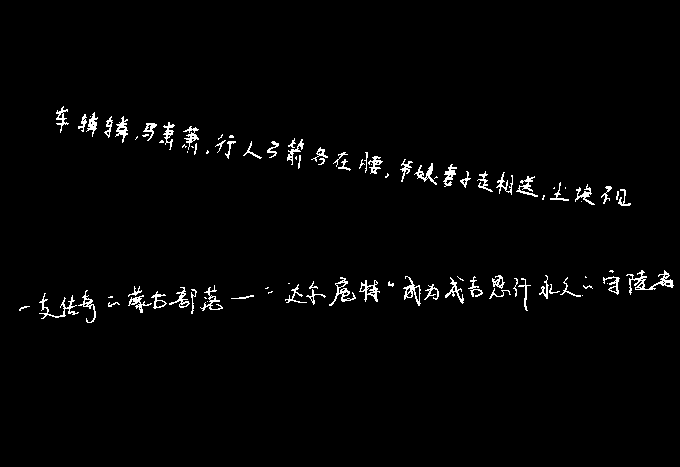 车辚辚,马萧萧,行人弓箭各在腰,爷娘妻子走相送,尘埃不见
一支传奇的蒙古部落—“达尔扈特”成为成吉思汗永久的守陵者